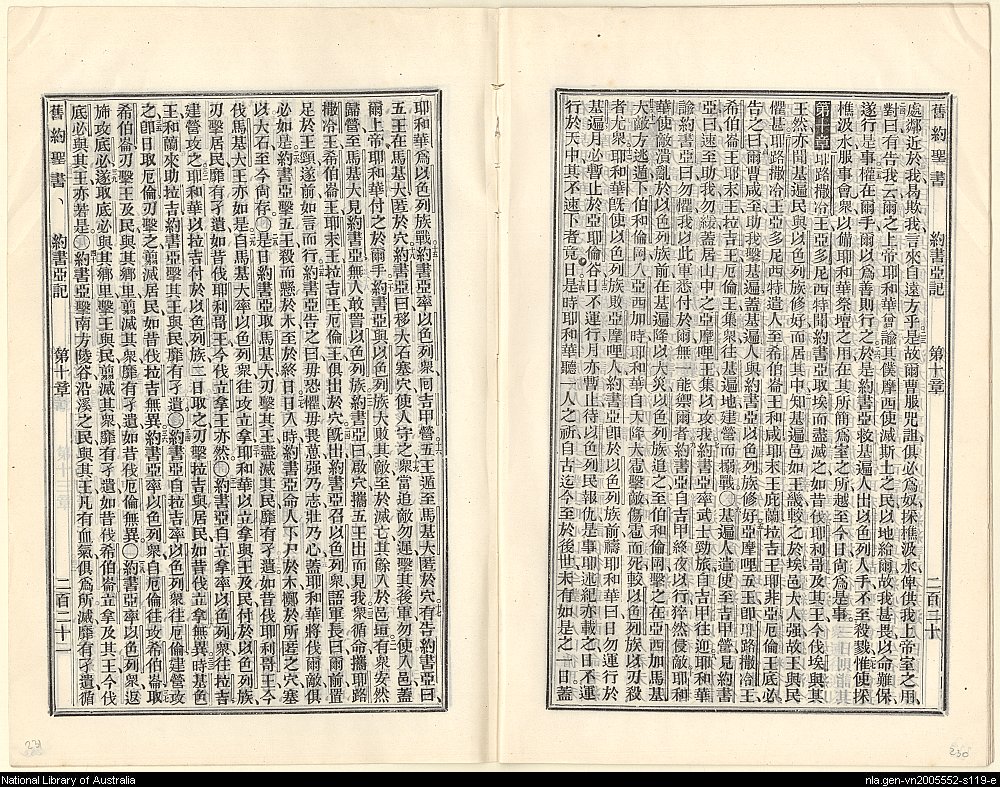 舊約聖書　約書亞記　第十章　二百三十
處鄰近於我曷欺我言來自遠方乎是故爾曹服咒詛俱必爲奴採樵汲水俾供我上帝室之用
對曰有告我云爾之上帝耶和華曾諭其僕摩西使滅斯土之民以地給爾故我甚畏以命難保
遂行是事權在爾手爾以爲善則行之於是約書亞救基遍人出以色列人手不至殺戮惟使採
樵汲水服事會衆以備耶和華祭壇之用在其所簡爲室之所越至今日尚爲是事
第十章 耶路撒冷王亞多尼西特聞約書亞取埃而盡滅之如昔伐耶利哥及其王今伐埃與其
王然亦聞基遍民與以色列族修好而居其中知基遍邑如王畿較之於埃邑大人强故王與民
懼甚耶路撒冷王亞多尼西特遺人至希伯崙王何咸耶末王庇蘭拉吉王耶非亞厄倫王底必
告之曰爾曹咸至助我擊基遍蓋基遍人與約書亞及以色列族修好亞摩哩五王卽耶路撒冷王
希伯崙王耶末王拉吉王厄倫王集衆往基遍地建營而搦戰○基遍人遣使至吉甲營見約書
亞曰速至助我勿緩蓋居山中之亞摩哩王集以攻我約書亞率武士勁旅自吉甲往迎耶和華
諭約書亞曰勿懼我以此軍悉付於爾無一能禦爾者約書亞自吉甲終夜以行猝然侵敵耶和
華使敵潰亂於以色列族前在基遍降以大災以色列族追之至伯和倫岡擊之在亞西加馬基
大敵方逃遁下伯和倫岡八亞西加時耶和華自天降大雹擊敵傷雹而死較以色列族以刃殺
者尤衆耶和華旣使以色列族敗亞摩哩人約書亞卽於以色列族前禱耶和華曰日勿運行於
基遍月必暫止於亞耶倫谷日不運行月亦暫止待以色列民報仇是事耶述紀亦載之日不運
行於天中其不速下者竟日是時耶和華聽一人之祈自古迄今至於後世未有如是之一日蓋
耶和華爲以色列族戰約書亞率以色列衆同吉甲營五王遁至馬基大匿於穴有告約書亞曰
五王在馬基大匿於穴約書亞曰移大石塞穴使人守之衆當追敵勿遲擊其後軍勿使入邑蓋
爾上帝耶和華付之於爾手約書亞與以色列族大敗其敵至於滅亡其餘入於邑垣有衆安然
歸營至馬基大見約書亞無人敢詈以色列族約書亞曰啟穴攜五王出而見我衆循命攜耶路
撒冷王希伯崙王耶末王拉吉王厄倫王俱出於穴旣出約書亞召以色列衆語軍長曰爾前置
足於王頸遂前如言而行約書亞告之曰毋恐懼毋畏葸强乃志壯乃心蓋耶和華將伐爾敵俱
必如是約書亞擊五王殺而懸於木至於終日日入時約書亞命人下尸於木擲於所匿之穴塞
以大石至今尙存○是日約書亞取馬基大刃擊其王盡滅其民靡有孑遺如昔伐耶利哥王今
伐馬基大王亦如是自馬基大率以色列衆往攻立拿耶和華以立拿與王及民付於以色列族
刃擊居民靡有孑遺如昔伐耶利哥王今伐立拿王亦然○約書亞自立拿率以色列衆往拉吉
建營攻之耶和華以拉吉付於以色列族二日取之刃擊拉吉與居民如昔伐立拿無異時基色
王和蘭來助拉吉約書亞擊其王與民靡有孑遺○約書亞自拉吉率以色列衆往厄倫建營攻
之卽日取厄倫刃擊之翦滅居民如昔伐拉吉無異約書亞率以色列衆自厄倫往攻希伯崙取
希伯崙刃擊王及民與其鄉里翦滅其衆靡有孑遺如昔伐厄倫無異○約書亞率以色列衆返
旆攻底必遂取底必與其鄉里擊王與民翦滅其衆靡有孑遺如昔伐希伯崙立拿及其王今伐
底必與其王亦若是○約書亞擊南方陵谷沿溪之民與其王凡有血氣俱爲所滅靡有孑遺循
舊約聖書、　約書亞記　第十章　二百二十一
231
230
National Library of Australia
nla.gen-vn2005552-s119-e